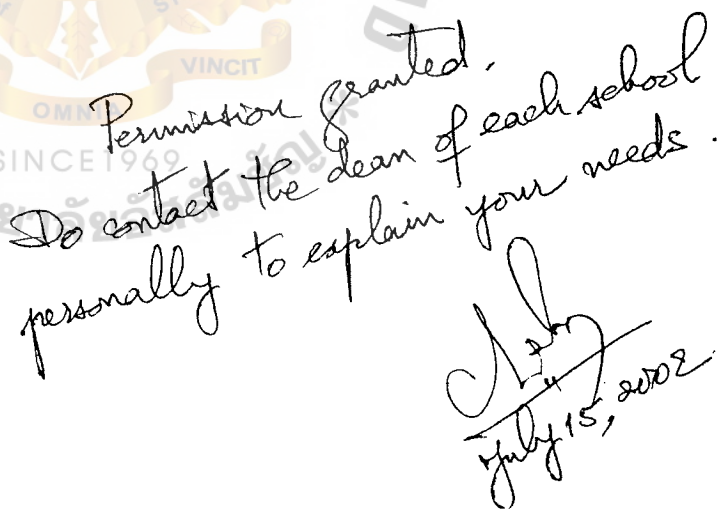 VINCIT
OMNIA
SINCE1969
Permission granted.
Do contact the dean of each school
personally to explain your needs.
July 15, 2002